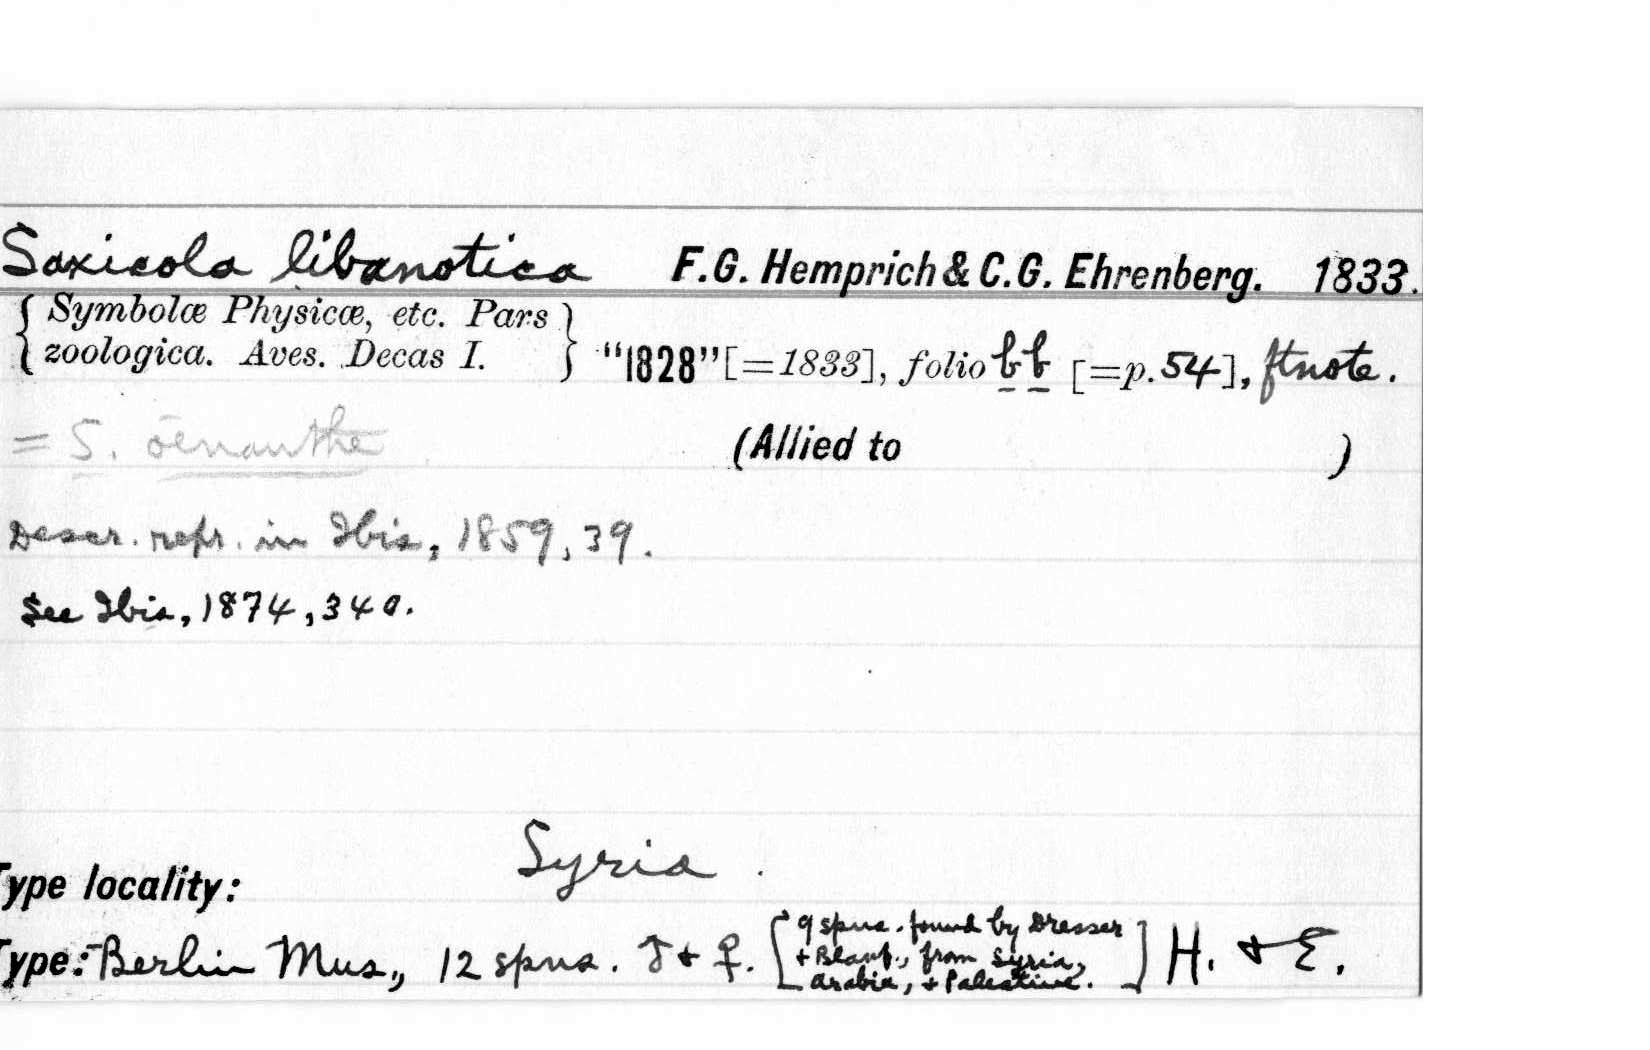 Saxicola libanotica F.G. Hemprich & C.G. Ehrenberg. 1833.
{ Symbolæ Physicæ, etc. Pars
zoologica. Aves. Decas I. } "1828" [=1833], folio bb [=p. 54], ftnote.
= S. œnanthe (Allied to )
Descr. repr. in Ibis, 1859, 39.
See Ibis, 1874, 340.
Syria.
Type locality:
Type:- Berlin Mus., 12 spns. ♂ + ♀. [9 spns. found by Dresser
+ Blanf., from Syria,
Arabia, + Palestine.] H. + E.